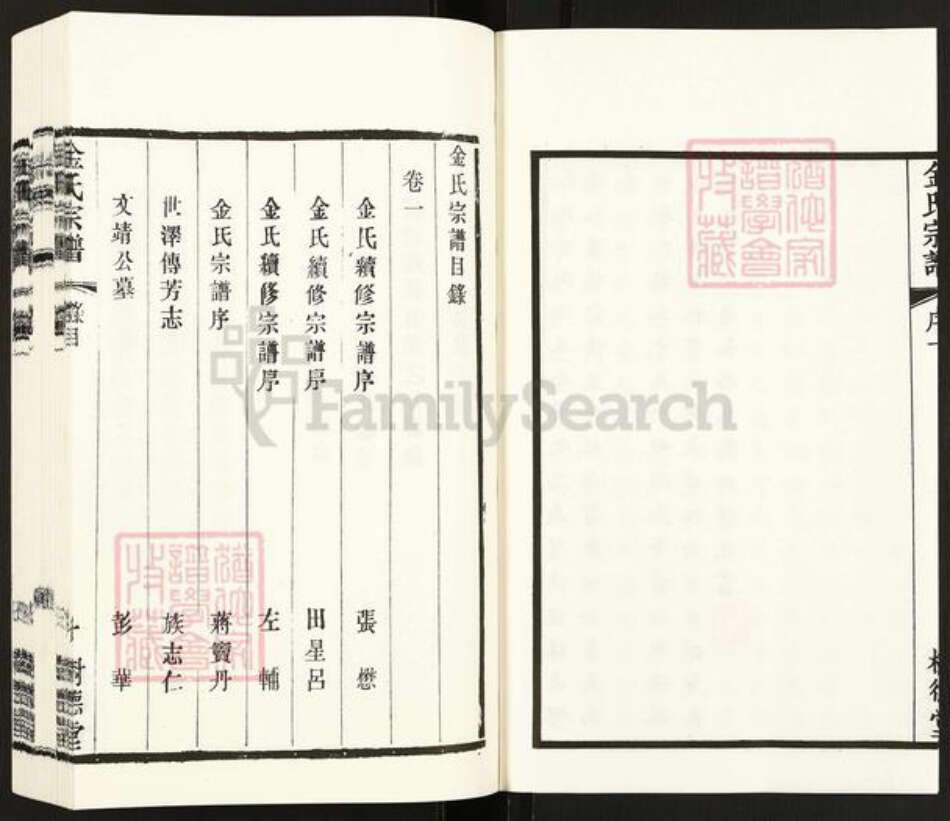 金氏宗譜
序一
樹德堂
金氏宗譜目錄
卷一
金氏續修宗譜序 張懋
金氏續修宗譜序 田呈呂
金氏續修宗譜序 左輔
金氏宗譜序 蔣寶丹
世澤傳芳志 族志仁
文靖公墓 彭華
金氏宗譜
目錄
樹德堂
FamilySearch